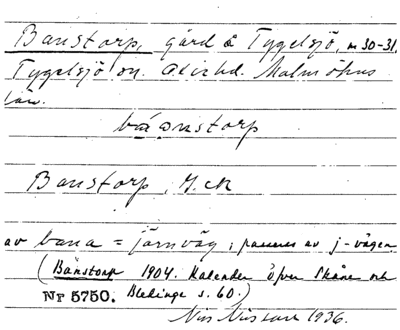 Banstorp, gård å Tygelsjö, n 30-31,
Tygelsjö sn. Oxie hd. Malmöhus
län.
Banstorp, J.ck
av bana = järnväg; passeras av j-vägen.
(Banstorp 1904. Kalender öfver Skåne och
Nr 5750. Blekinge s. 60.)
Nils Nilsson 1936.